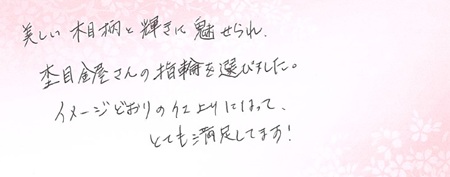 美しい木目柄と輝きに魅せられ、
杢目金屋さんの指輪を選びました。
イメージどおりの仕上りになって、
とても満足してます!